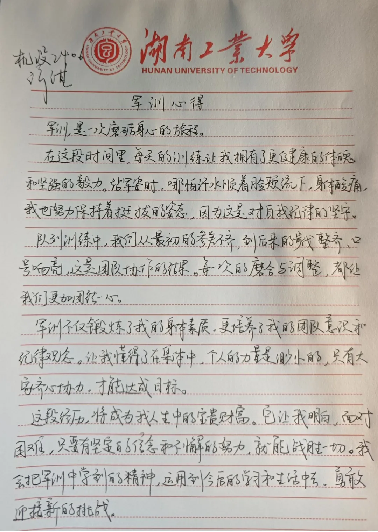 湖南工業大学
HUNAN UNIVERSITY OF TECHNOLOGY
机设240
军训心得
军训,是一次磨砺身心的旅程。
在这段时间里,每天的训练让我拥有了更健康的体魄
和坚强的毅力。站军姿时,哪怕汗水顺着脸颊流下,身体酸痛,
我也努力保持着挺拔的姿态,因为这是对自我纪律的坚守。
队列训练中,我们从最初的参差不齐,到后来的整齐,口
号响亮,这是团队协作的结果。每一次的磨合与调整,都让
我们更加团结一心。
军训不仅锻炼了我的身体素质,更培养了我的团队意识和
纪律观念。让我懂得了在集体中,个人的力量是渺小的,只有大
家齐心协力,才能达成目标。
这段经历,将成为我人生中的宝贵财富。它让我明白,面对
困难,只要有坚定的信念和不懈的努力,就能战胜一切。我
会把军训中学到的精神,运用到今后的学习和生活中去,勇敢
迎接新的挑战。